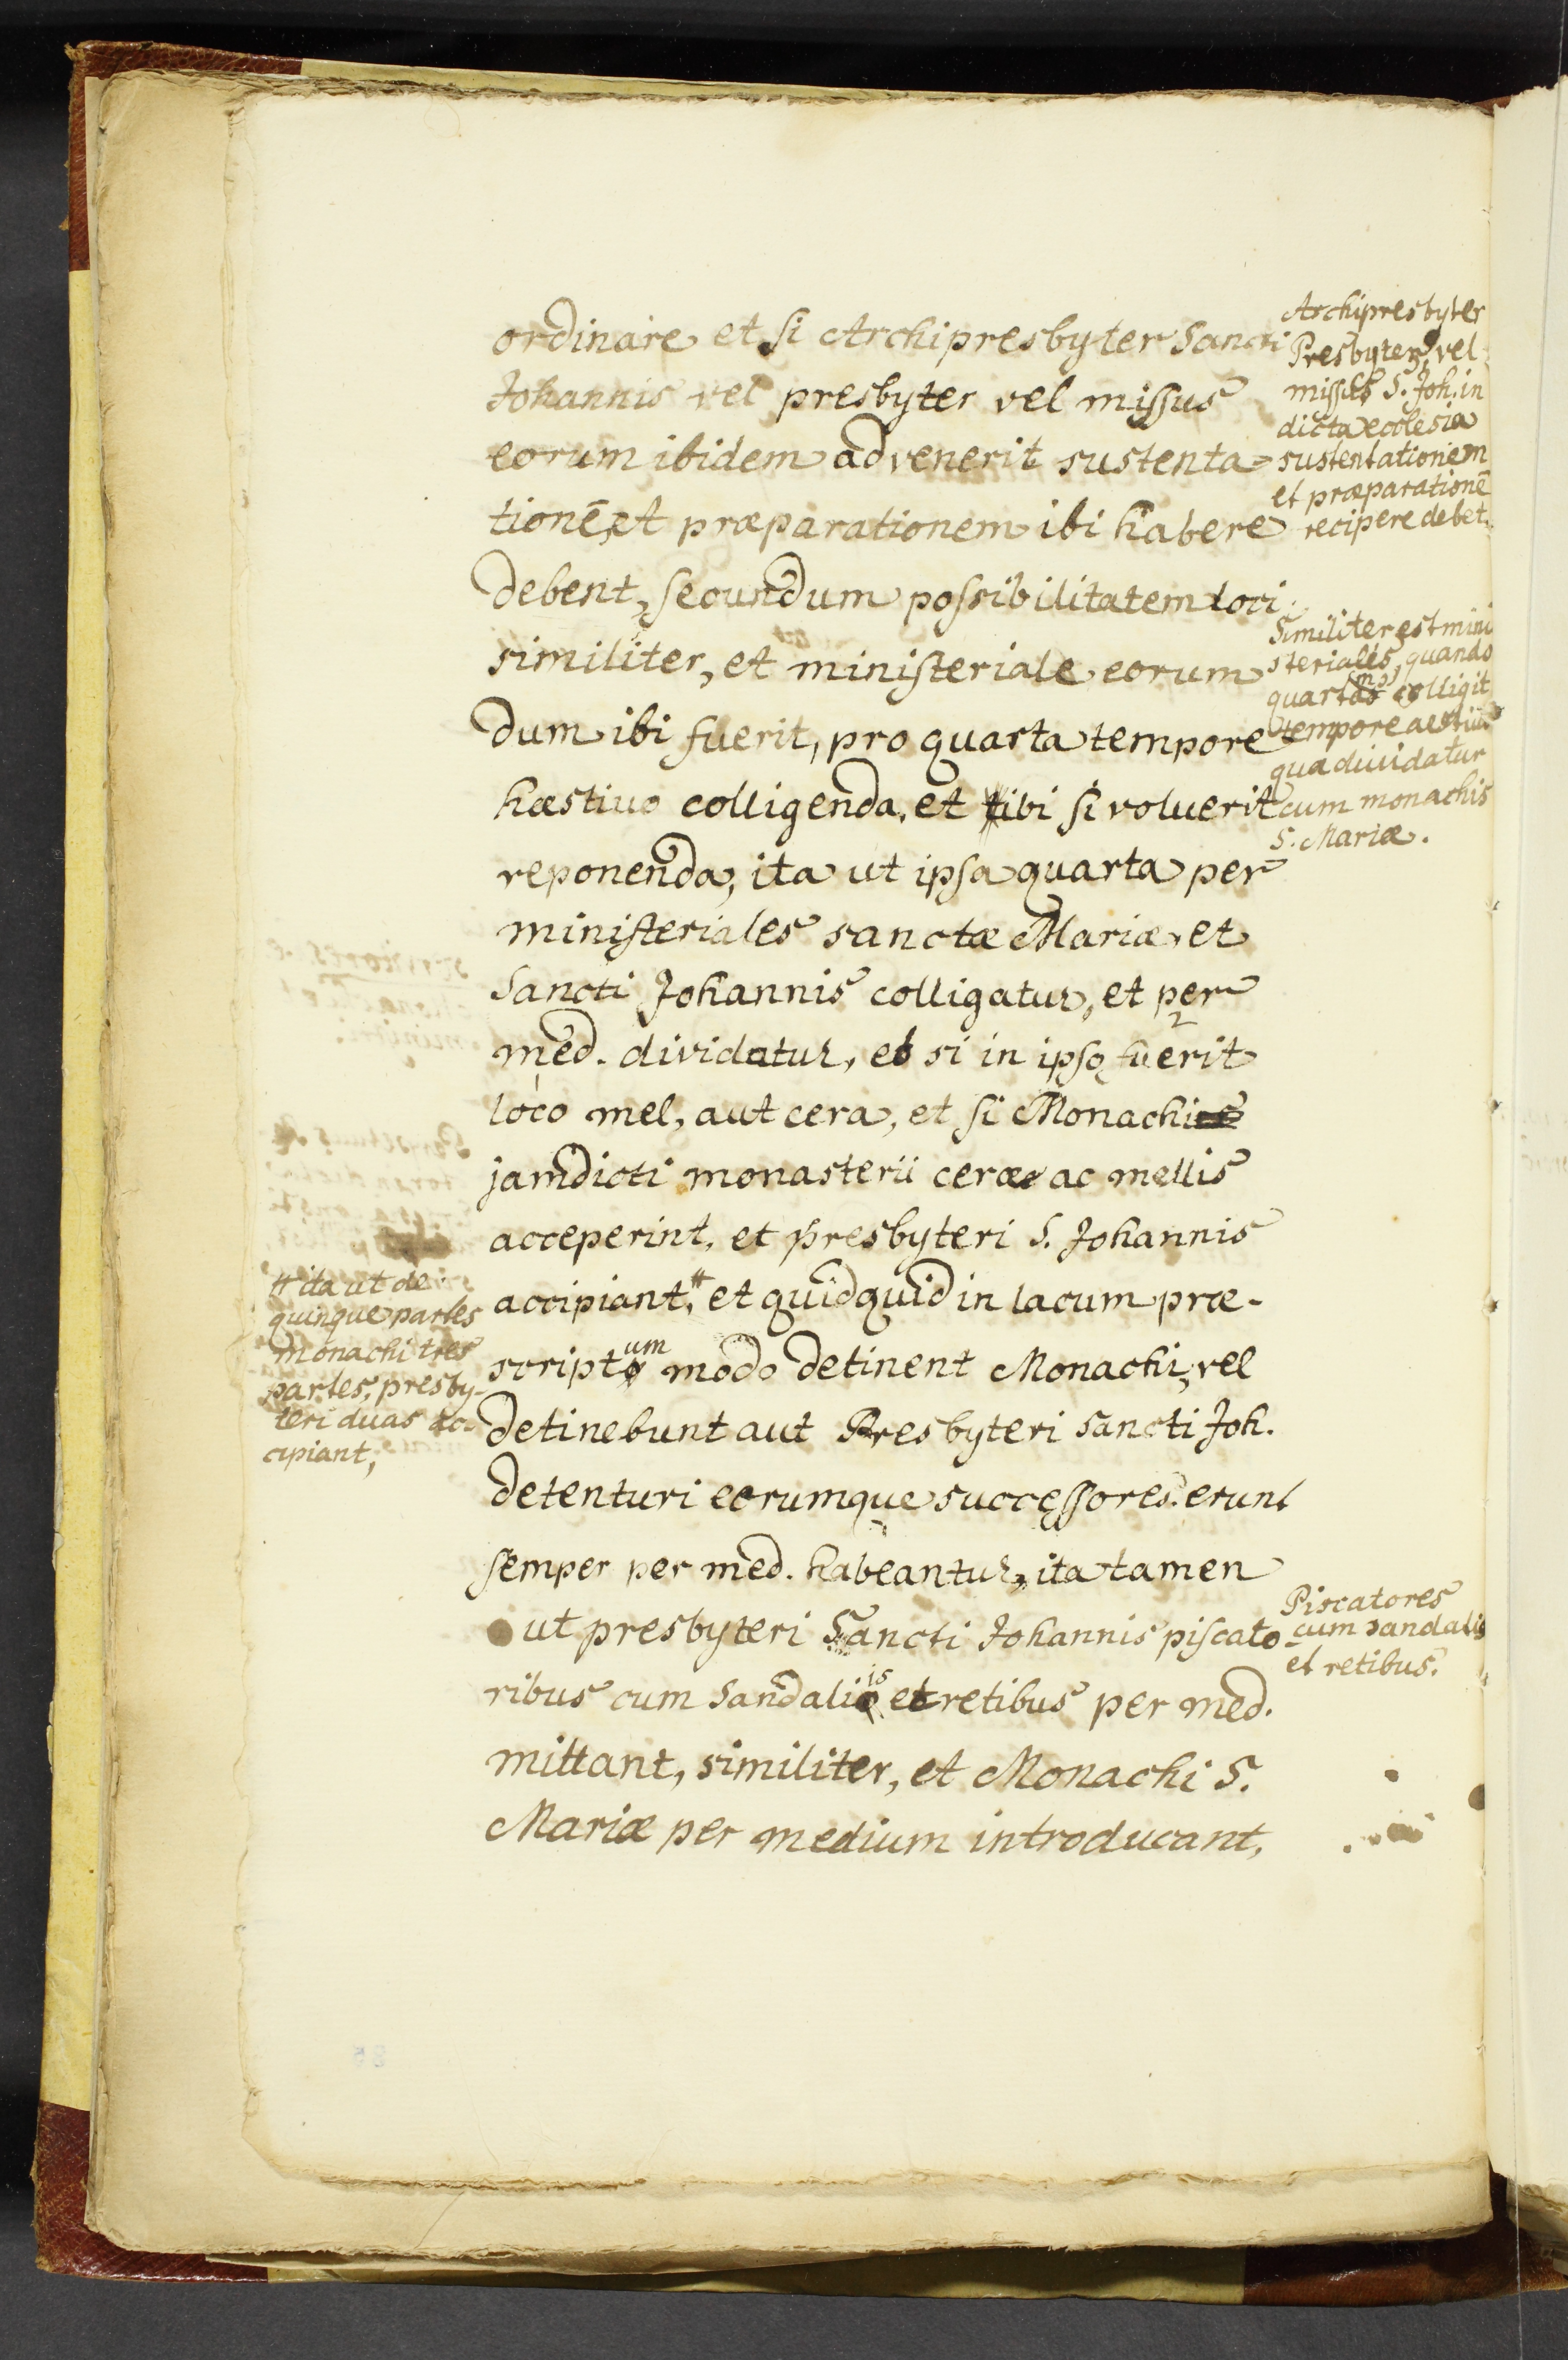 ordinare et si Archipresbyter Sancti
Johannis vel presbyter vel missus
eorum ibidem advenerit sustenta-
tionē, et præparationem ibi habere
debent, secundum possibilitatem loci
similiter, et ministeriale eorum
dum ibi fuerit, pro quarta tempore
hæstiuo colligenda, et ibi si voluerit
reponenda, ita ut ipsa quarta per
ministeriales sanctæ Mariæ, et
Sancti Johannis colligatur, et per
med. dividatur, et si in ipso fuerit
loco mel, aut cera, et si Monachi
jamdicti monasterii ceræ ac mellis
acceperint, et presbyteri S. Johannis
accipiant,# et quidquid in lacum præ-
scriptum modo detinent Monachi, vel
detinebunt aut Presbyteri Sancti Joh.
detenturi eorumque successores erunt
semper per med. habeantur, ita tamen
ut presbyteri Sancti Johannis piscato-
ribus cum Sandaliis et retibus per med.
mittant, similiter, et Monachi S.
Mariæ per medium introducant,
Archipresbyter
Presbyter, vel
missus S. Joh. in
dicta ecclesia
sustentationem
et præparationē
recipere debet.
Similiter est mini
steriales, quando
colligit
tempore
qua diuidatur
cum monachis
S. Mariæ.
# ita ut de
quinque partes
monachi tres
partes, presby-
teri duas ac-
cipiant,
Piscatores
cum sandalis
et retibus.